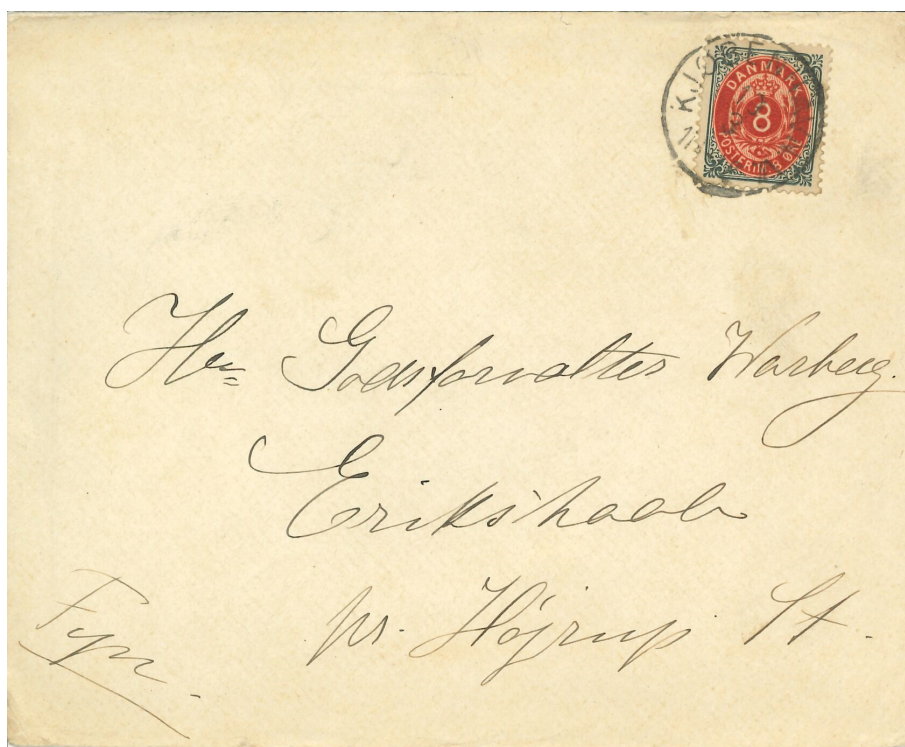 KJØGE
DANMARK
8
POSTFRIM. 8 ØRE
Hr. Godsforvalter Warberg.
Erikshaab
pr. Højrup St.
Fyn.